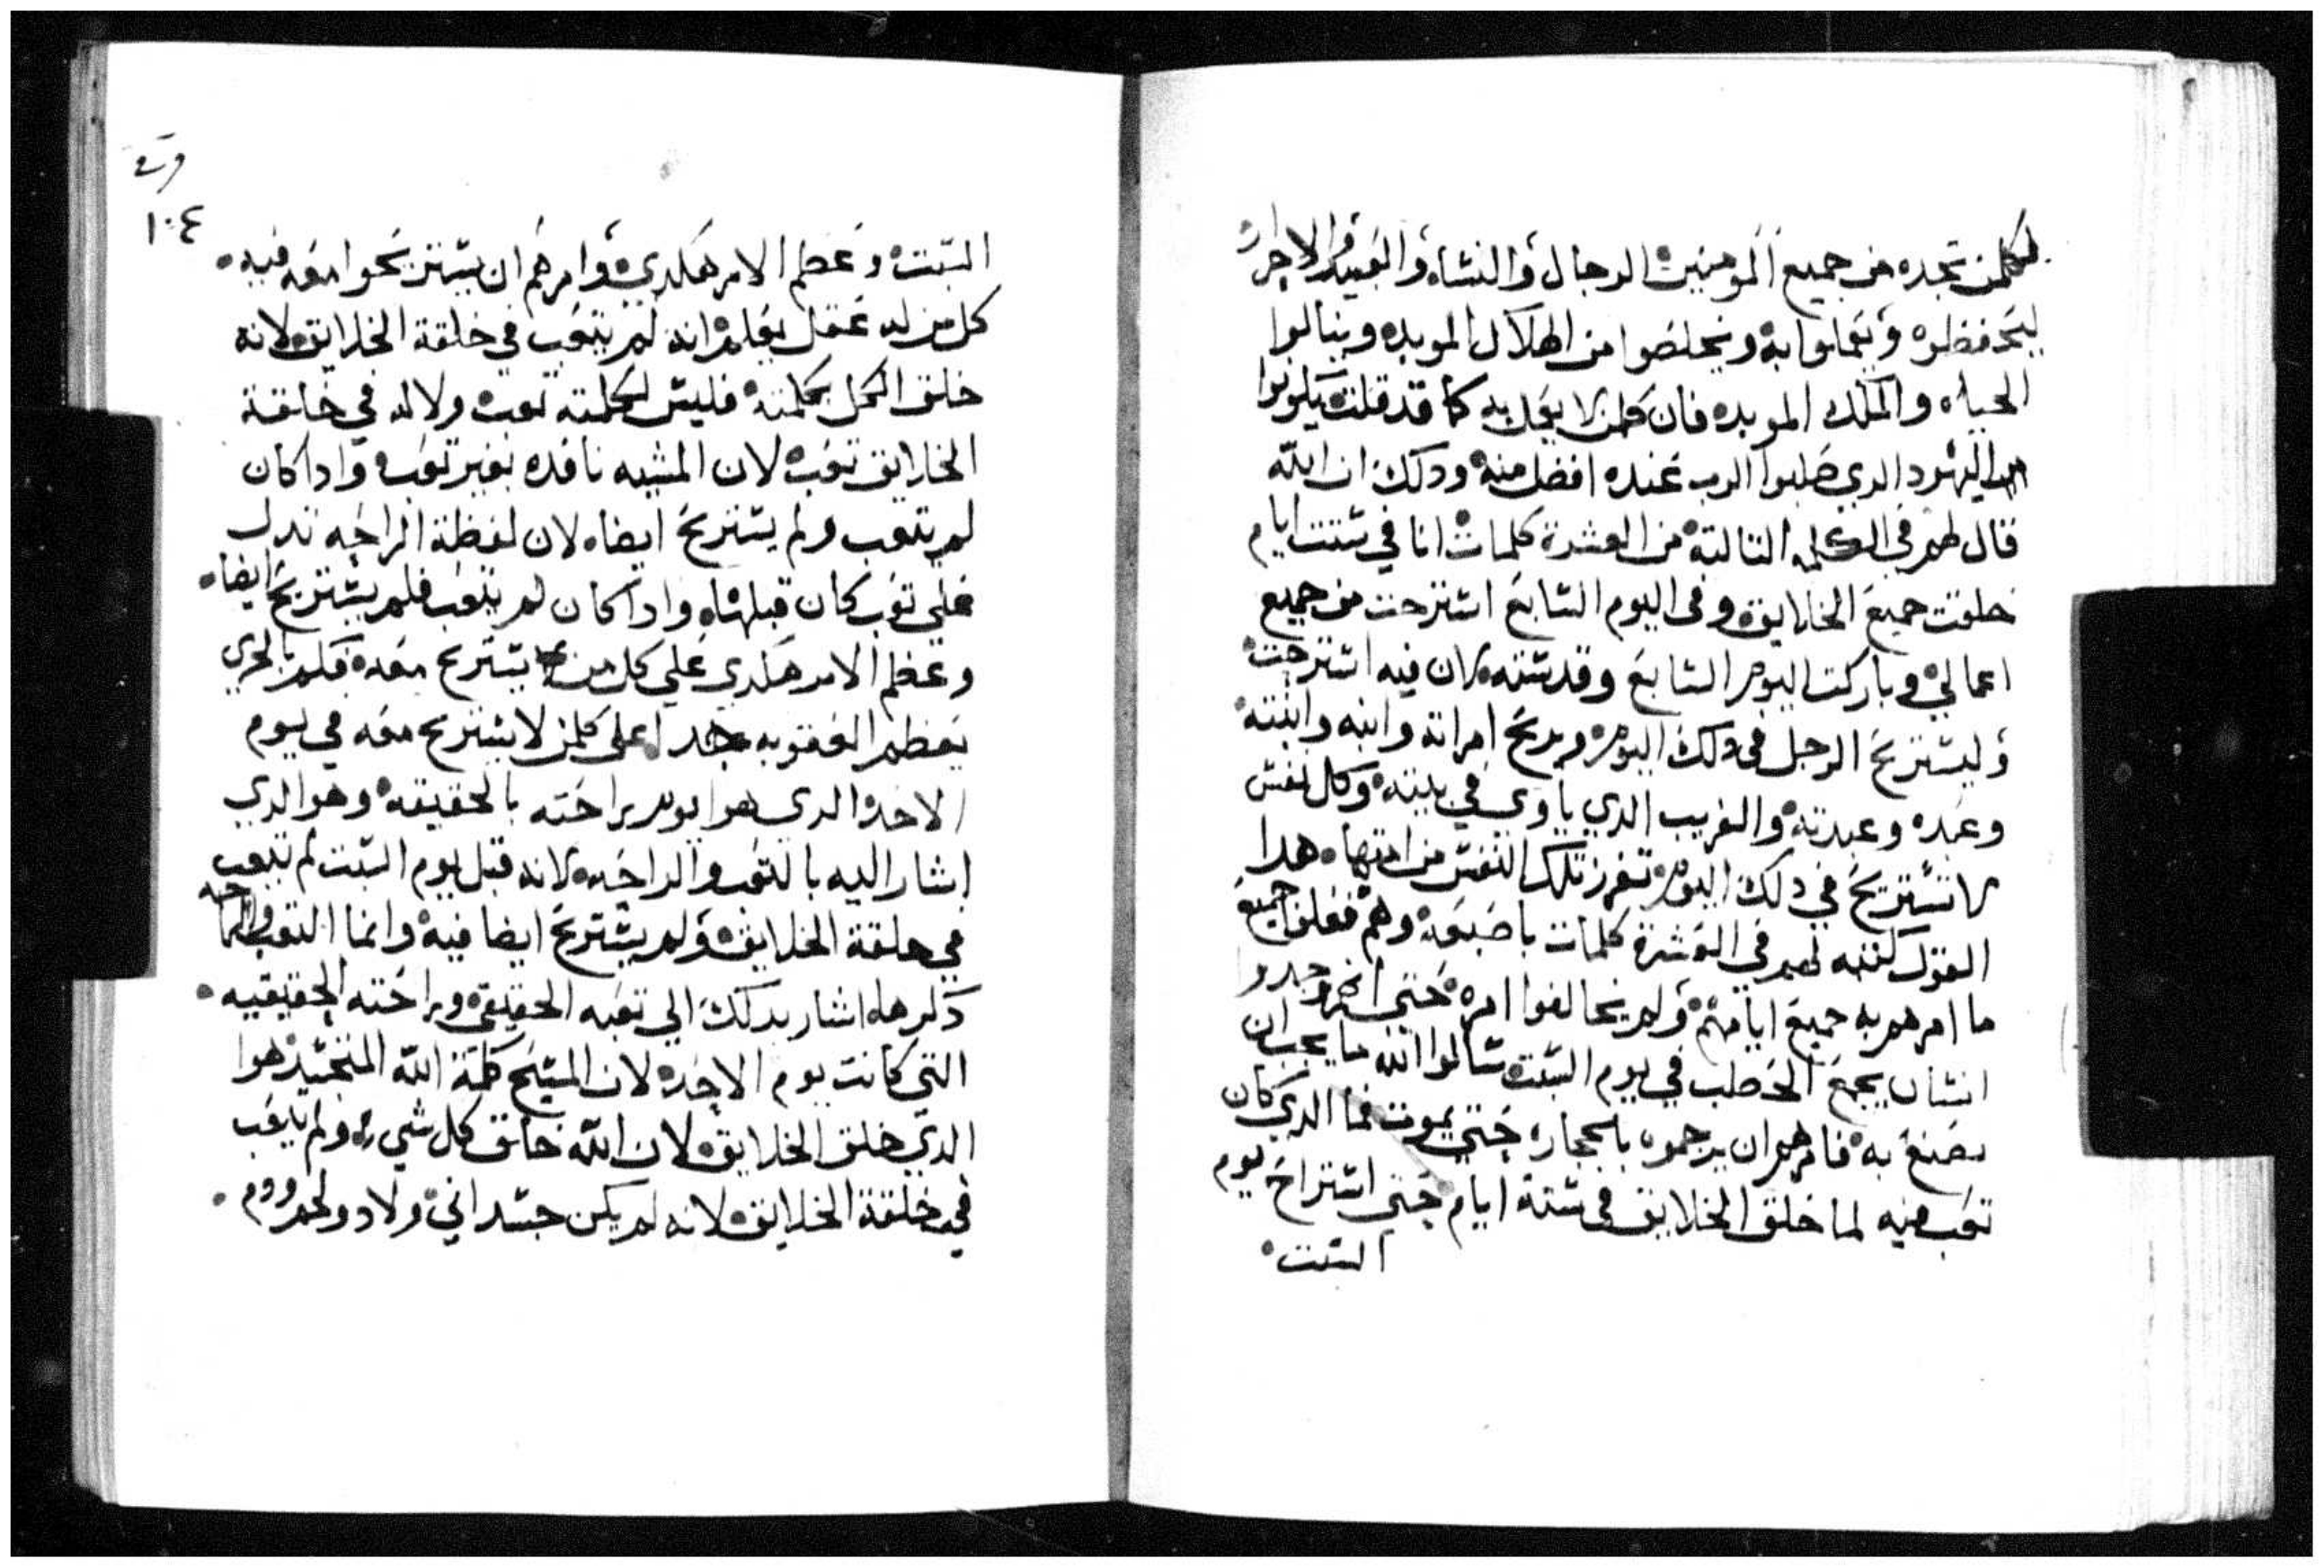 لكلمن تجده من جميع المومنين الرجال والنساء والعبيد والاحرار
ليتحفظوا ويعملوا به ويخلصوا من الهلاك الموبده وينالوا
الحياه والملك الموبده فان كلمن لا يعمل به كما قد قلت يكونوا
اليهود الدي صلبوا الرب عنده افضل منه ودلك ان الله
قال لهم في الكلمه التالتة من العشرة كلمات انا في ستت ايام
خلقت جميع الخلايق وفي اليوم السابع استرحت من جميع
اعمالي وباركت اليوم السابع وقدسته لان فيه استرحت
وليستريح الرجل في دلك اليوم ويريح امراته وابنه وابنته
وعبده وعبدته والغريب الدي ياوي في بيته وكل نفس
لا تستريح في دلك اليوم تفرز تلك النفس من امتها هدا
القول كتبه لهم في العشرة كلمات باصبعه وهم فعلوا جميع
ما امرهم به جميع ايامهم ولم يخالفوا امره حتي انهم وجدوا
انسان يجمع الحطب في يوم السبت سالوا الله ما يجب ان
يصنع به فامرهم ان يرجموه بالحجاره حتي يموت فما الدي كان
تعب فيه لما خلق الخلايق في ستة ايام حتي استراح يوم
السبت
١٠٤
السبت وعظم الامر هكدي وامرهم ان يستريحوا معه فيه
كل من له عقل يعلم انه لم يتعب في خلقة الخلايق لانه
خلق الكل بكلمته فليس لكلمته تعب ولا له في خلقة
الخلايق تعب لان المشيه نافده بغير تعب وادا كان
لم يتعب ولم يستريح ايضا لان لفظة الراحه تدل
علي تعب كان قبلها وادا كان لم يتعب فلم يستريح ايضا
وعظم الامر هكدي علي كل من يستريح معه فكم بالحري
يعظم العقوبه جدا علي كلمن لا يستريح معه في يوم
الاحد الدي هو يوم راحته بالحقيقه وهو الدي
اشار اليه بالتعب والراحه لانه قبل يوم السبت لم تتعب
في خلقة الخلايق ولم يستريح ايضا فيه وانما التعب والراحه
دكرها اشار بدلك الي تعبه الحقيقي وراحته الحقيقيه
التي كانت يوم الاحد لان المسيح كلمة الله المتجسد هوا
الدي خلق الخلايق لان الله خالق كل شي ولم يتعب
في خلقة الخلايق لانه لم يكن جسداني ولا دو لحم ودم